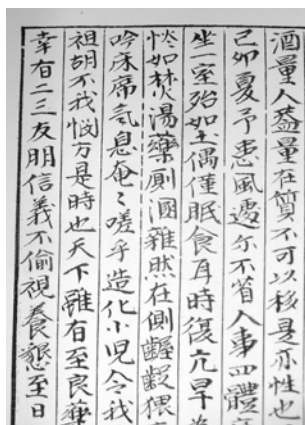 酒量人益量在質不可以核是亦性也
己卯夏予患風遽尔不省人事四體
坐一室殆如土偶僅眠食耳時復亢旱
惔如焚湯藥厠溷雜然在側齷齪猥
吟床席氣息奄〻嗟乎造化小児令我
祖胡不我憫方是時也天下雖有至良
幸有二三友明信義不偷視養懇至日